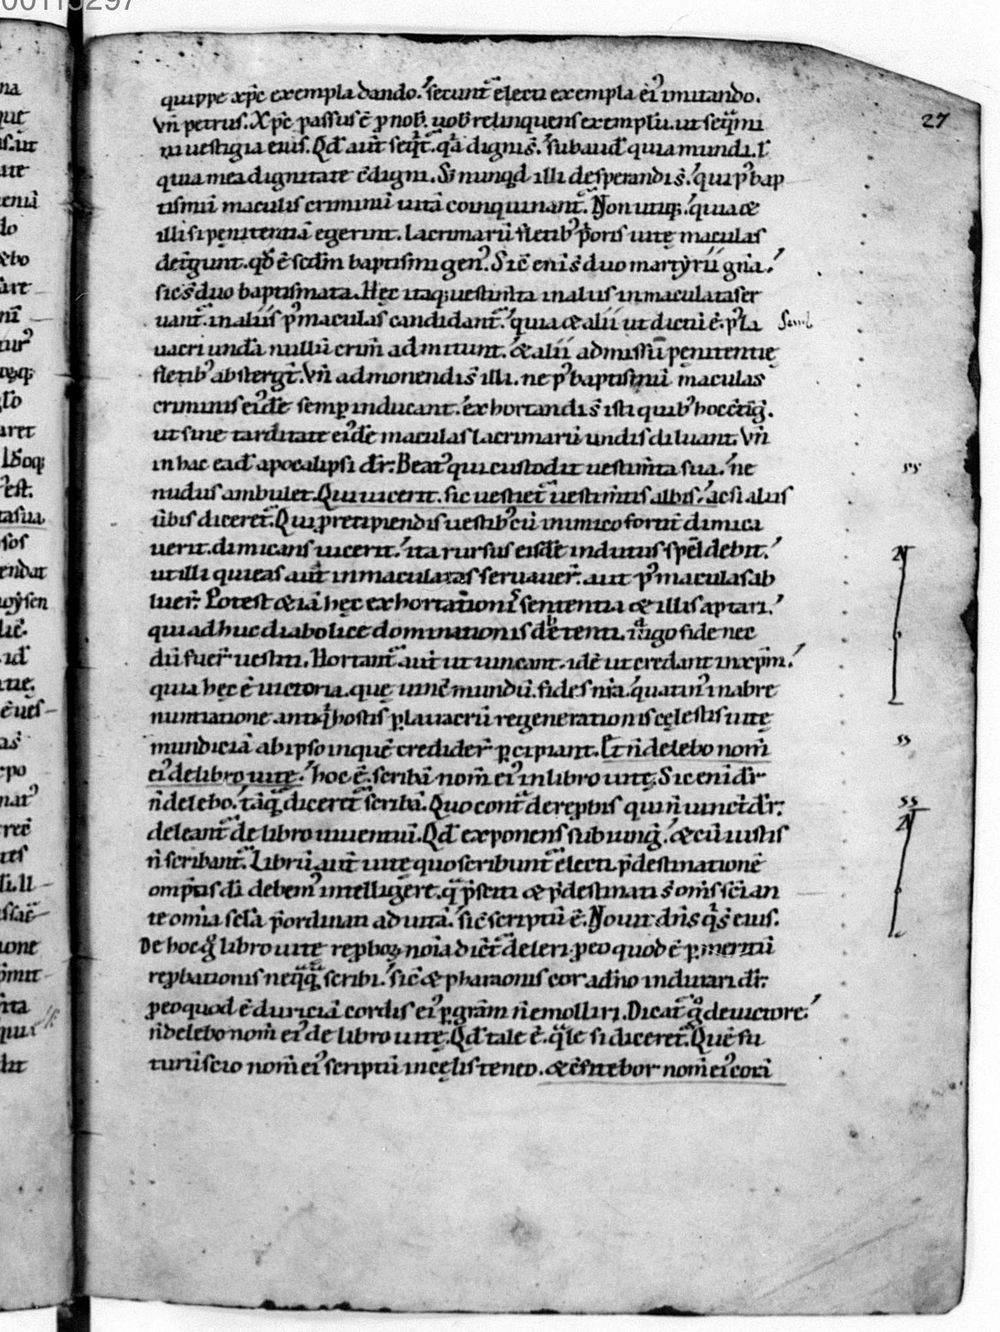 quippe xp̄c exempla dando. secunt᷑ electi exempla ei᷒ imitando.
Vn̄ petrus. Xp̄c passus ē p nob᷒. uob᷒ relinquens exemplū. ut seq̄mi
ni uestigia eius. Qđ aut̄ seq̄t᷑. q̄a digni s̄. subaud̄ quia mundi. ł
quia mea dignitate c̄digni. Sꝫ nunqđ illi desperandi s̄. qui p᷒ bap
tismū maculis criminū uitā coinquinant᷑. Non utiq;. quia &
illi si penitentiā egerint. lacrimarū fletib᷒ p̄oris uitę maculas
det̄gunt. qđ ē scd̄m baptismi gen᷒. Sic̄ eni s̄ duo martyrii gn̄a.
sic s̄ duo baptismata. Hęc itaq; uestim̄ta in aliis inmaculata ser
uant᷑. in aliis p᷒ maculas candidant᷑. quia & alii ut dictū ē. p᷒ la
uacri undā nullū crim̄ admittunt. & alii admissū penitentię
fletib᷒ absterg̅t. Vn̄ admonendi s̄ illi. ne p᷒ baptismū maculas
criminis eisdē semp inducant. exhortandi s̄ isti quib᷒ hoc c̄tig̅.
ut sine tarditate eisdē maculas lacrimarū undis diluant. Vn̄
in hac ead̄ apocalipsi dr̄. Beat᷒ qui custodit uestim̄ta sua. ne
nudus ambulet. Qui uicerit. sic uestiet᷑ uestim̄tis albis. ac si aliis
ūbis diceret᷑. Qui p recipiendis uestib᷒ cū inimico fortit̄ dimica
uerit. dimicans uicerit. ita rursus eisdē indutus spēl debit.
ut illi qui eas aut inmaculatas seruauer̄. aut p᷒ maculas ab
luer̄. Potest & iā hęc exhortationis sententia & illis aptari.
qui adhuc diabolice dominationis detenti. imago fide nec
dū fuer̄ uestiti. Hortant᷑ aut̄ ut uincant. idē ut credant in xp̄m.
quia hęc ē uictoria. que uincit mundū. fides nr̄a. quatin᷒ in abre
nuntiatione antiq̄ hostis p lauacrū regenerationis cęlestis uitę
mundiciā ab ipso in quē credider̄ pcipiant. Et n̄ delebo nom̄
ei᷒ de libro uitę. hoc ē. scribā nom̄ ei᷒ in libro uitę. Sic eni dr̄
n̄ delebo. tāq̄ diceret᷑ scribā. Quo cont᷑ de repbis qui n̄ uinct̄ dr̄.
deleant᷑ de libro uiuentiū. Qđ exponens subiung̅. & cū iustis
n̄ scribant᷑. Librū aut̄ uitę quo scribunt᷑ electi. p̄destinationē
omp̄tis dī debem᷒ intelligere. q̄ p̄sciti & p̄destinati s̄ om̄s sc̄i an
te om̄ia scl̄a p̄ordinati ad uitā. sic̄ scriptū ē. Nouit dn̄s q̄ s̄ eius.
De hoc g̊ libro uitę repboꝝ noīa dic̄t deleri. p eo quod ē p meritū
repbationis neq̄q̄ scribi. sic̄ & pharaonis cor a dn̄o indurari dr̄.
p eo quod ē duriciā cordis ei᷒ p gram̄ n̄ emolliri. Dicat᷑ g̊ de uictore.
n̄ delebo nom̄ ei᷒ de libro uitę. Qđ tale ē. q̄le si diceret᷑. Quē fu
turū scio nom̄ ei᷒ scriptū in cęlis teneo. & c̄fitebor nom̄ ei᷒ corā
27